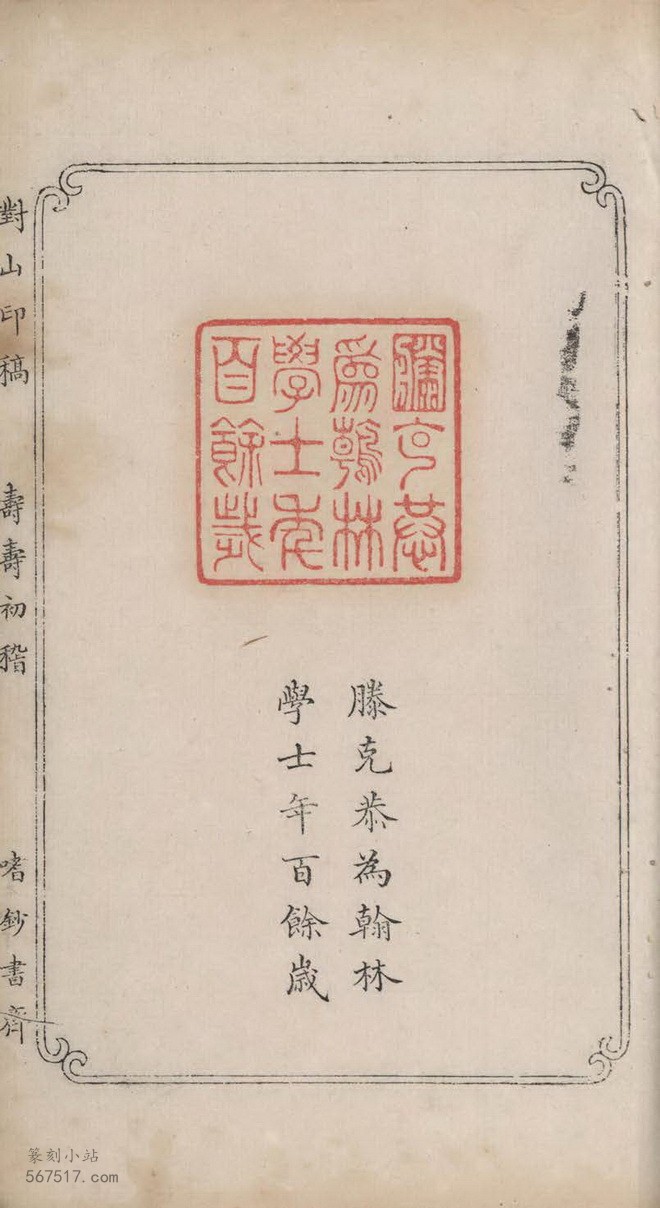 滕克恭
為翰林
學士年
百餘歲
滕克恭為翰林
學士年百餘歲
對山印稿 壽壽初稽 嗜鈔書齋
篆刻小站
567517.com